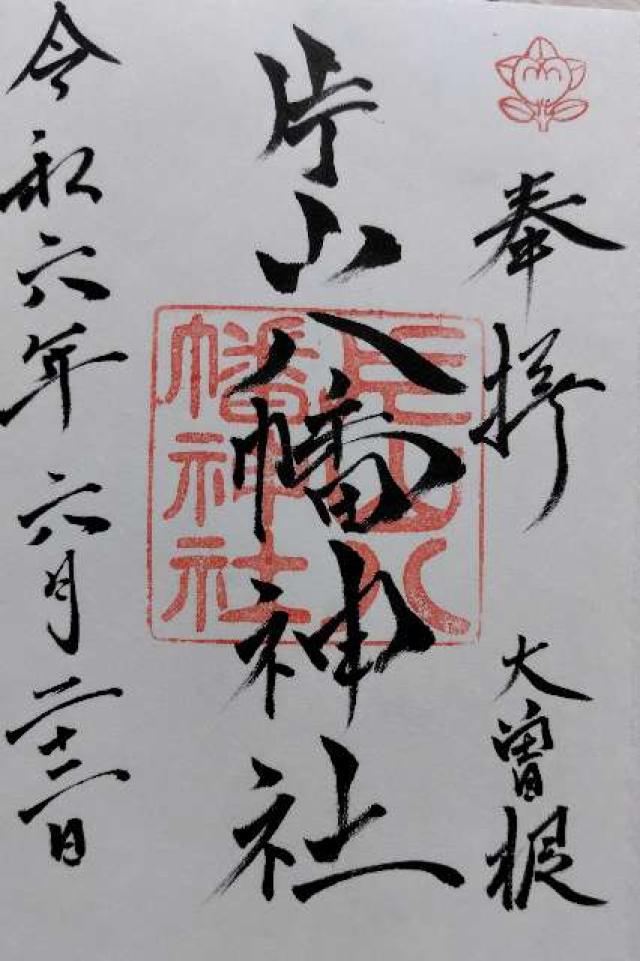 奉拝
大曽根
片山八幡神社
片山八
幡神社
令和六年六月二十二日